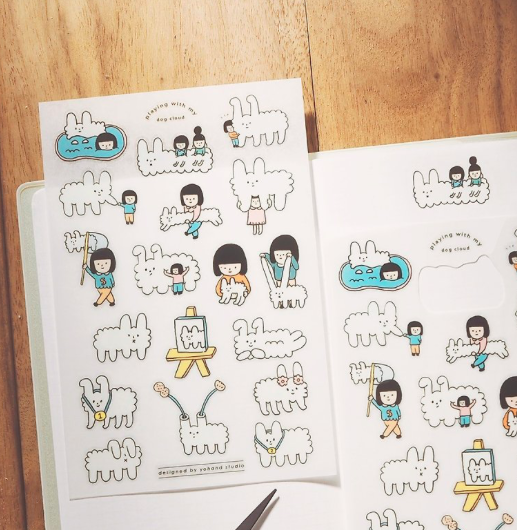 playing with my
dog cloud
designed by yohand studio
playing with my
dog cloud